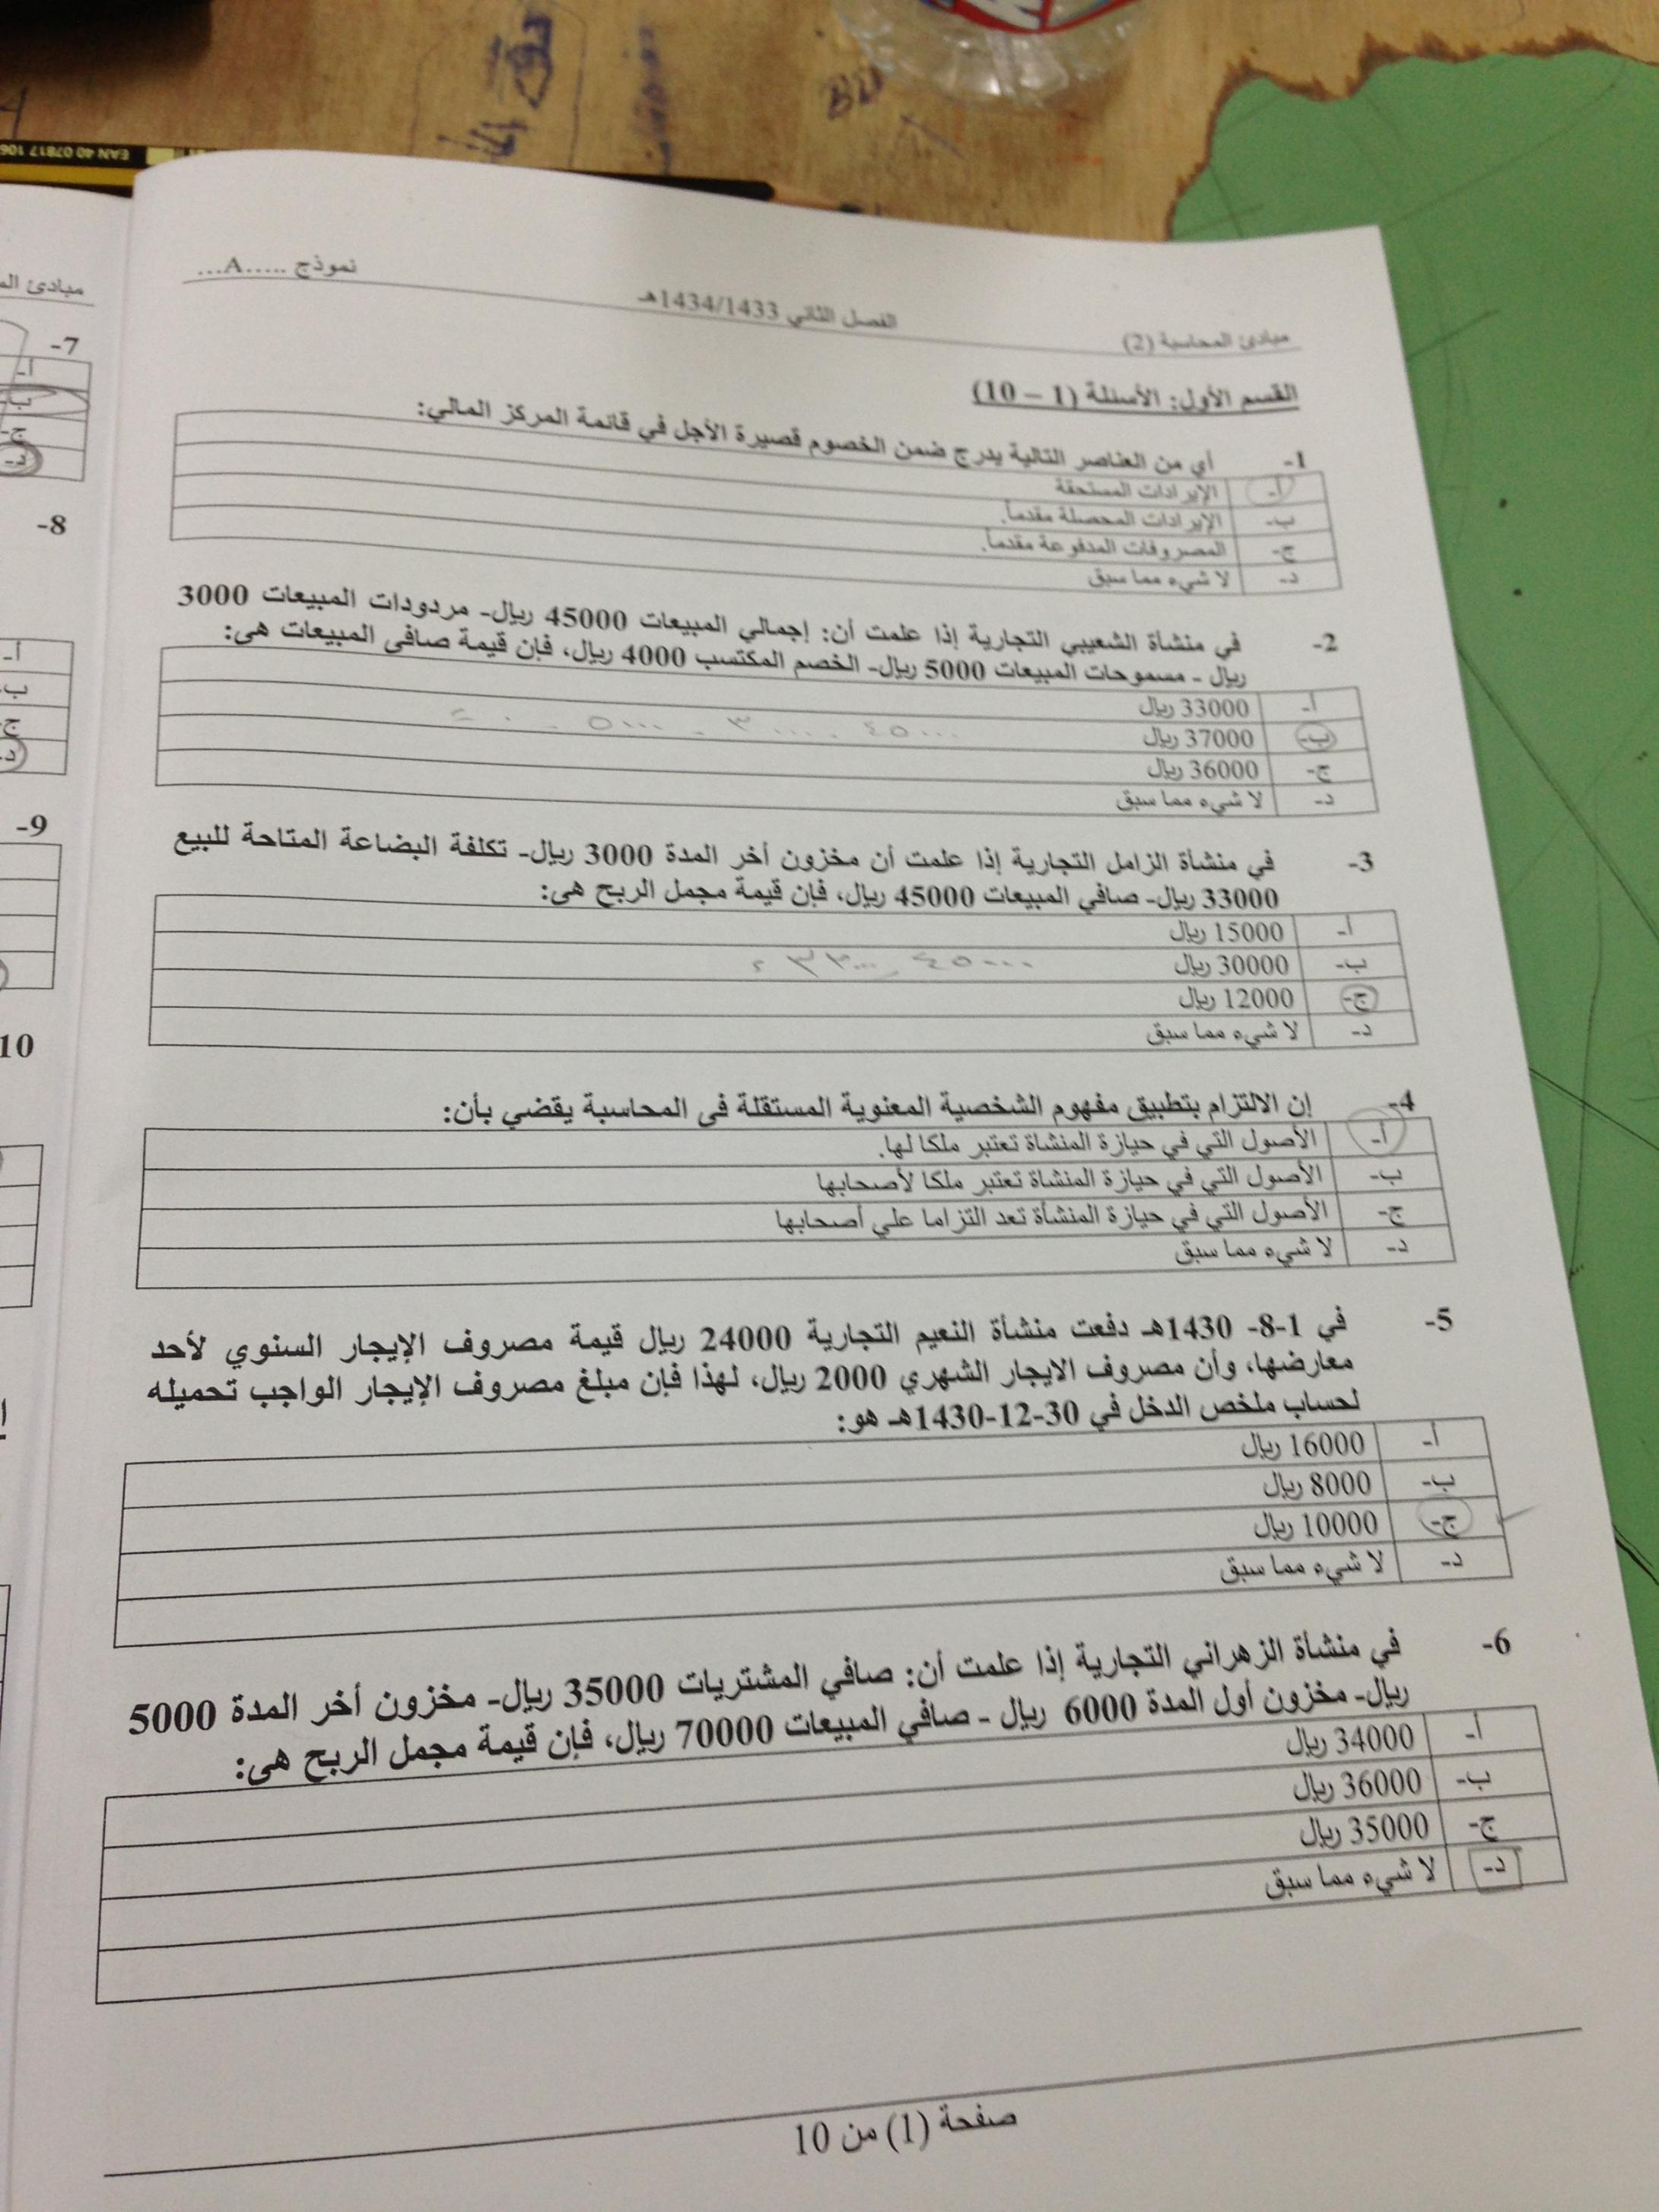 مبادئ المحاسبة (2)
الفصل الثاني 1434/1433هـ
نموذج .....A...
القسم الأول: الأسئلة (1 – 10)
1- أي من العناصر التالية يدرج ضمن الخصوم قصيرة الأجل في قائمة المركز المالي:
أ- الإيرادات المستحقة
ب- الإيرادات المحصلة مقدماً.
ج- المصروفات المدفوعة مقدماً.
د- لا شيء مما سبق
2- في منشأة الشعيبي التجارية إذا علمت أن: إجمالي المبيعات 45000 ريال- مردودات المبيعات 3000
ريال - مسموحات المبيعات 5000 ريال- الخصم المكتسب 4000 ريال، فإن قيمة صافى المبيعات هى:
أ- 33000 ريال
ب- 37000 ريال
ج- 36000 ريال
د- لا شيء مما سبق
3- في منشأة الزامل التجارية إذا علمت أن مخزون أخر المدة 3000 ريال- تكلفة البضاعة المتاحة للبيع
33000 ريال- صافي المبيعات 45000 ريال، فإن قيمة مجمل الربح هى:
أ- 15000 ريال
ب- 30000 ريال
ج- 12000 ريال
د- لا شيء مما سبق
4- إن الالتزام بتطبيق مفهوم الشخصية المعنوية المستقلة فى المحاسبة يقضي بأن:
أ- الأصول التي في حيازة المنشاة تعتبر ملكا لها.
ب- الأصول التي في حيازة المنشاة تعتبر ملكا لأصحابها
ج- الأصول التي في حيازة المنشأة تعد التزاما علي أصحابها
د- لا شيء مما سبق
5- في 1-8- 1430هـ دفعت منشأة النعيم التجارية 24000 ريال قيمة مصروف الإيجار السنوي لأحد
معارضها، وأن مصروف الايجار الشهري 2000 ريال، لهذا فإن مبلغ مصروف الإيجار الواجب تحميله
لحساب ملخص الدخل في 30-12-1430هـ هو:
أ- 16000 ريال
ب- 8000 ريال
ج- 10000 ريال
د- لا شيء مما سبق
6- في منشأة الزهراني التجارية إذا علمت أن: صافي المشتريات 35000 ريال- مخزون أخر المدة 5000
ريال- مخزون أول المدة 6000 ريال - صافي المبيعات 70000 ريال، فإن قيمة مجمل الربح هى:
أ- 34000 ريال
ب- 36000 ريال
ج- 35000 ريال
د- لا شيء مما سبق
صفحة (1) من 10
7-
أ-
ب-
ج-
د-
8-
أ-
ب-
ج-
د-
9-
10